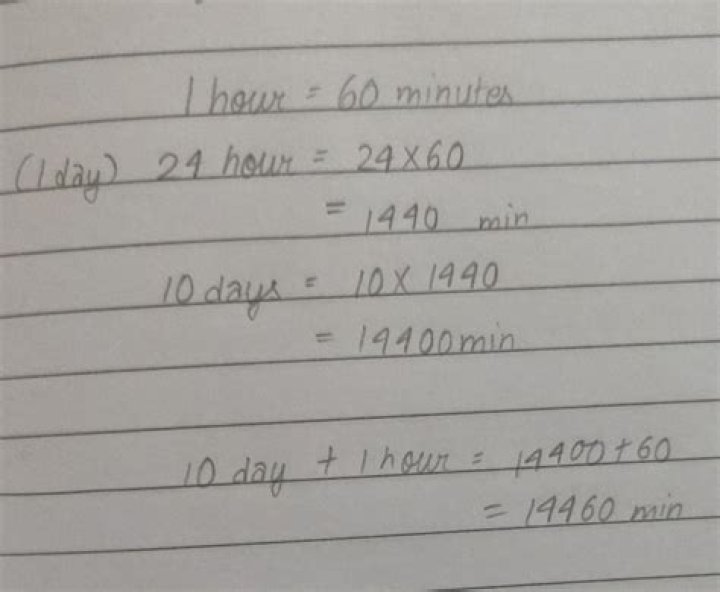 1 hour = 60 minutes
(1 day) 24 hour = 24×60
= 1440 min
10 days = 10 × 1440
= 14400 min
10 day + 1 hour = 14400+60
= 14460 min